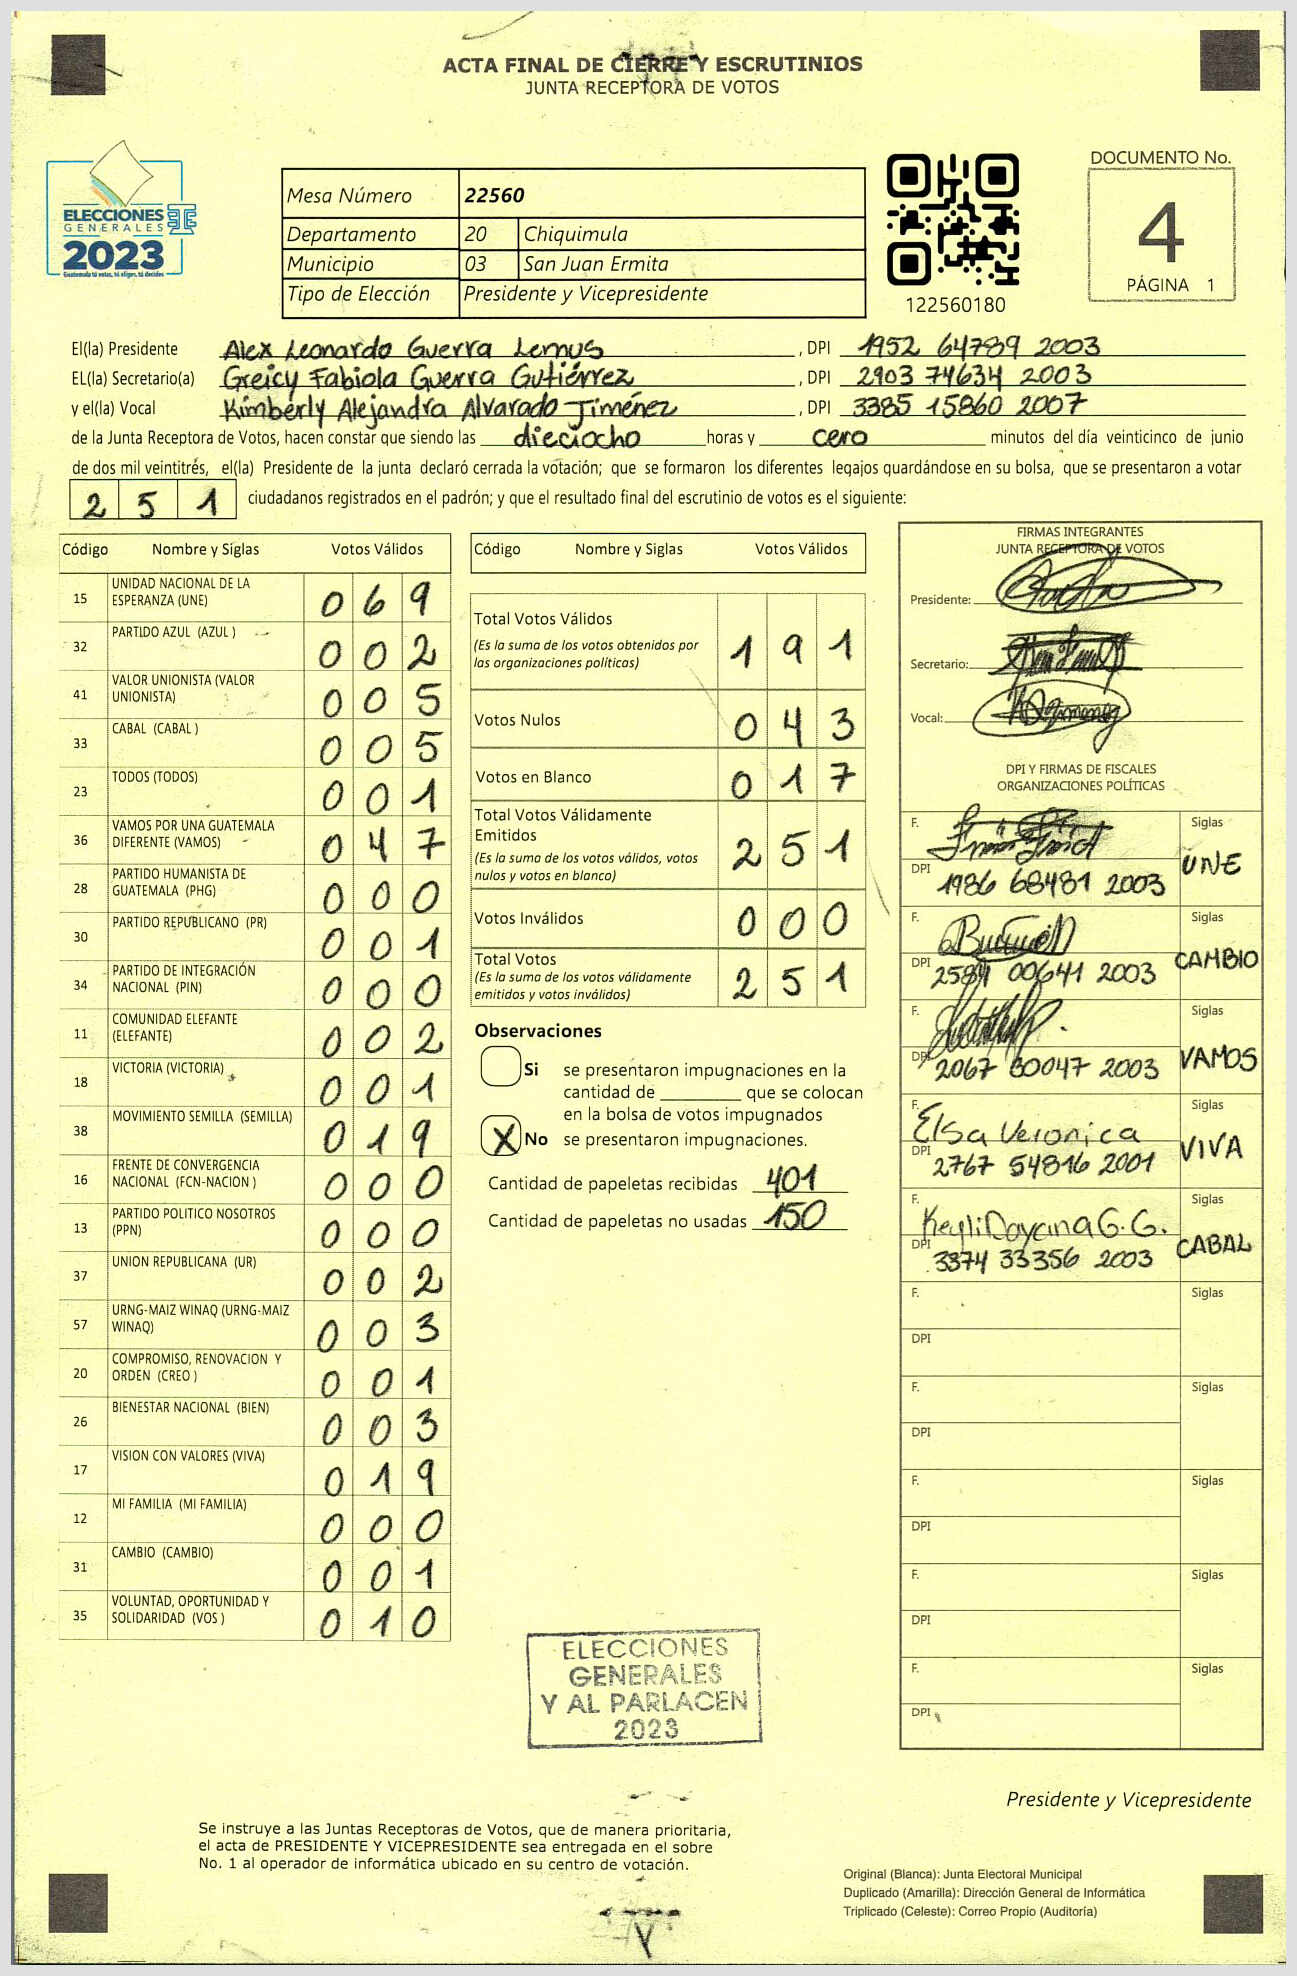 ACTA FINAL DE CIERRE Y ESCRUTINIOS
JUNTA RECEPTORA DE VOTOS
ELECCIONES
GENERALES
2023
Guatemala tú votas, tú eliges, tú decides
Mesa Número 22560
Departamento 20 Chiquimula
Municipio 03 San Juan Ermita
Tipo de Elección Presidente y Vicepresidente
122560180
DOCUMENTO No.
4
PÁGINA 1
El(la) Presidente Alex Leonardo Guerra Lemus, DPI 1952 64789 2003
EL(la) Secretario(a) Greicy Fabiola Guerra Gutiérrez, DPI 2903 74634 2003
y el(la) Vocal Kimberly Alejandra Alvarado Jiménez, DPI 3385 15860 2007
de la Junta Receptora de Votos, hacen constar que siendo las dieciocho horas y cero minutos del día veinticinco de junio
de dos mil veintitrés, el(la) Presidente de la junta declaró cerrada la votación; que se formaron los diferentes legajos guardándose en su bolsa, que se presentaron a votar
2 5 1 ciudadanos registrados en el padrón; y que el resultado final del escrutinio de votos es el siguiente:
Código Nombre y Siglas Votos Válidos
15 UNIDAD NACIONAL DE LA
ESPERANZA (UNE) 0 6 9
32 PARTIDO AZUL (AZUL ) 0 0 2
41 VALOR UNIONISTA (VALOR
UNIONISTA) 0 0 5
33 CABAL (CABAL ) 0 0 5
23 TODOS (TODOS) 0 0 1
36 VAMOS POR UNA GUATEMALA
DIFERENTE (VAMOS) 0 4 7
28 PARTIDO HUMANISTA DE
GUATEMALA (PHG) 0 0 0
30 PARTIDO REPUBLICANO (PR) 0 0 1
34 PARTIDO DE INTEGRACIÓN
NACIONAL (PIN) 0 0 0
11 COMUNIDAD ELEFANTE
(ELEFANTE) 0 0 2
18 VICTORIA (VICTORIA) 0 0 1
38 MOVIMIENTO SEMILLA (SEMILLA) 0 1 9
16 FRENTE DE CONVERGENCIA
NACIONAL (FCN-NACION ) 0 0 0
13 PARTIDO POLITICO NOSOTROS
(PPN) 0 0 0
37 UNION REPUBLICANA (UR) 0 0 2
57 URNG-MAIZ WINAQ (URNG-MAIZ
WINAQ) 0 0 3
20 COMPROMISO, RENOVACION Y
ORDEN (CREO ) 0 0 1
26 BIENESTAR NACIONAL (BIEN) 0 0 3
17 VISION CON VALORES (VIVA) 0 1 9
12 MI FAMILIA (MI FAMILIA) 0 0 0
31 CAMBIO (CAMBIO) 0 0 1
35 VOLUNTAD, OPORTUNIDAD Y
SOLIDARIDAD (VOS ) 0 1 0
Código Nombre y Siglas Votos Válidos
Total Votos Válidos
(Es la suma de los votos obtenidos por
las organizaciones políticas) 1 9 1
Votos Nulos 0 4 3
Votos en Blanco 0 1 7
Total Votos Válidamente
Emitidos
(Es la suma de los votos válidos, votos
nulos y votos en blanco) 2 5 1
Votos Inválidos 0 0 0
Total Votos
(Es la suma de los votos válidamente
emitidos y votos inválidos) 2 5 1
Observaciones
Si se presentaron impugnaciones en la
cantidad de ________ que se colocan
en la bolsa de votos impugnados
X No se presentaron impugnaciones.
Cantidad de papeletas recibidas 401
Cantidad de papeletas no usadas 150
FIRMAS INTEGRANTES
JUNTA RECEPTORA DE VOTOS
Presidente:
Secretario:
Vocal:
DPI Y FIRMAS DE FISCALES
ORGANIZACIONES POLÍTICAS
F. Siglas
DPI 1986 68481 2003 UNE
F. Siglas
DPI 2584 00641 2003 CAMBIO
F. Siglas
DPI 2067 80047 2003 VAMOS
F. Elsa Veronica Siglas
DPI 2767 54816 2001 VIVA
F. Keyli Dayana G. G. Siglas
DPI 3374 33356 2003 CABAL
F. Siglas
DPI
F. Siglas
DPI
F. Siglas
DPI
F. Siglas
DPI
F. Siglas
DPI
ELECCIONES
GENERALES
Y AL PARLACEN
2023
Presidente y Vicepresidente
Se instruye a las Juntas Receptoras de Votos, que de manera prioritaria,
el acta de PRESIDENTE Y VICEPRESIDENTE sea entregada en el sobre
No. 1 al operador de informática ubicado en su centro de votación.
Original (Blanca): Junta Electoral Municipal
Duplicado (Amarilla): Dirección General de Informática
Triplicado (Celeste): Correo Propio (Auditoría)